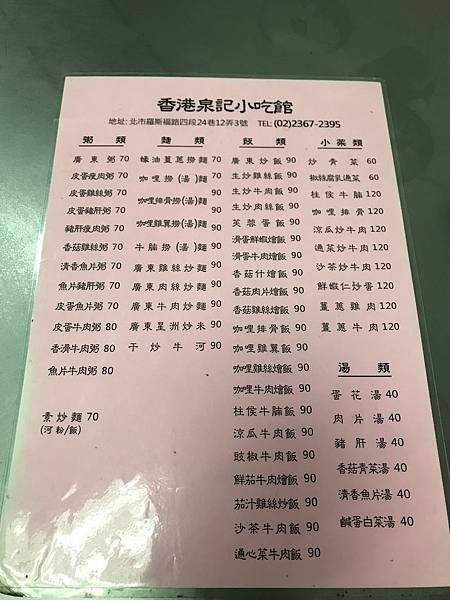 香港泉記小吃館
地址: 北市羅斯福路四段24巷12弄3號 TEL: (02)2367-2395
粥類
廣東粥 70
皮蛋瘦肉粥 70
皮蛋雞絲粥 70
皮蛋豬肝粥 70
豬肝瘦肉粥 70
香菇雞絲粥 70
清香魚片粥 70
魚片豬肝粥 70
皮蛋魚片粥 70
皮蛋牛肉粥 80
香滑牛肉粥 80
魚片牛肉粥 80
素炒麵 70
(河粉/飯)
麵類
蠔油薑蔥撈麵 70
咖哩撈(湯)麵 70
咖哩排骨撈(湯)麵 90
咖哩雞翼撈(湯)麵 90
牛腩撈(湯)麵 90
廣東雞絲炒麵 90
廣東肉絲炒麵 90
廣東牛肉炒麵 90
廣東星洲炒米 90
干炒牛河 90
飯類
廣東炒飯 90
生炒雞絲飯 90
生炒牛肉飯 90
芙蓉蛋飯 90
滑蛋鮮蝦燴飯 90
滑蛋牛肉燴飯 90
香菇什燴飯 90
香菇肉片燴飯 90
香菇雞絲燴飯 90
咖哩排骨飯 90
咖哩雞翼飯 90
咖哩雞絲燴飯 90
咖哩牛肉燴飯 90
柱侯牛腩飯 90
涼瓜牛肉飯 90
豉椒牛肉飯 90
鮮茄牛肉燴飯 90
茄汁雞絲炒飯 90
沙茶牛肉飯 90
通心菜牛肉飯 90
小菜類
炒青菜 60
椒絲腐乳通菜 60
柱侯牛腩 120
咖哩排骨 120
涼瓜炒牛肉 120
通菜炒牛肉 120
沙茶炒牛肉 120
鮮蝦仁炒蛋 120
薑蔥雞肉 120
薑蔥牛肉 120
湯類
蛋花湯 40
肉片湯 40
豬肝湯 40
香菇青菜湯 40
清香魚片湯 40
鹹蛋白菜湯 40